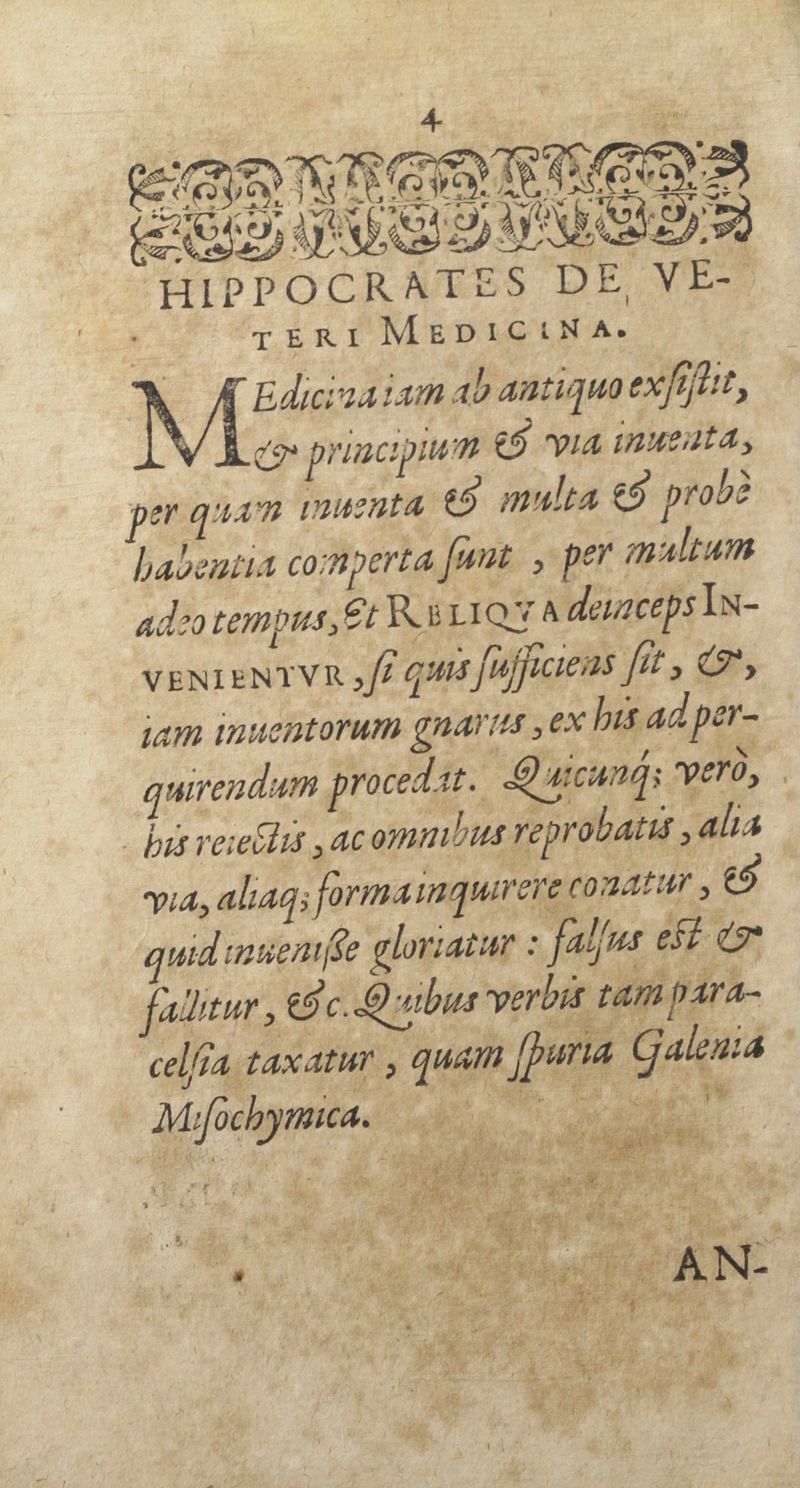 4
HIPPOCRATES DE VE-
TERI MEDICINA.
MEdicina iam ab antiquo exsistit,
& principium & via inuenta,
per quam inuenta & multa & probè
habentia comperta sunt , per multum
adeo tempus, Et RELIQVA deinceps IN-
VENIENTVR, si quis sufficiens sit, &,
iam inuentorum gnarus, ex his ad per-
quirendum procedat. Quicunq́; verò,
his reiectis, ac omnibus reprobatis, alia
via, aliaq; forma inquirere conatur, &
quid inuenisse gloriatur : falsus est &
fallitur, &c. Quibus verbis tam para-
celsia taxatur , quam spuria Galenia
Misochymica.
AN-